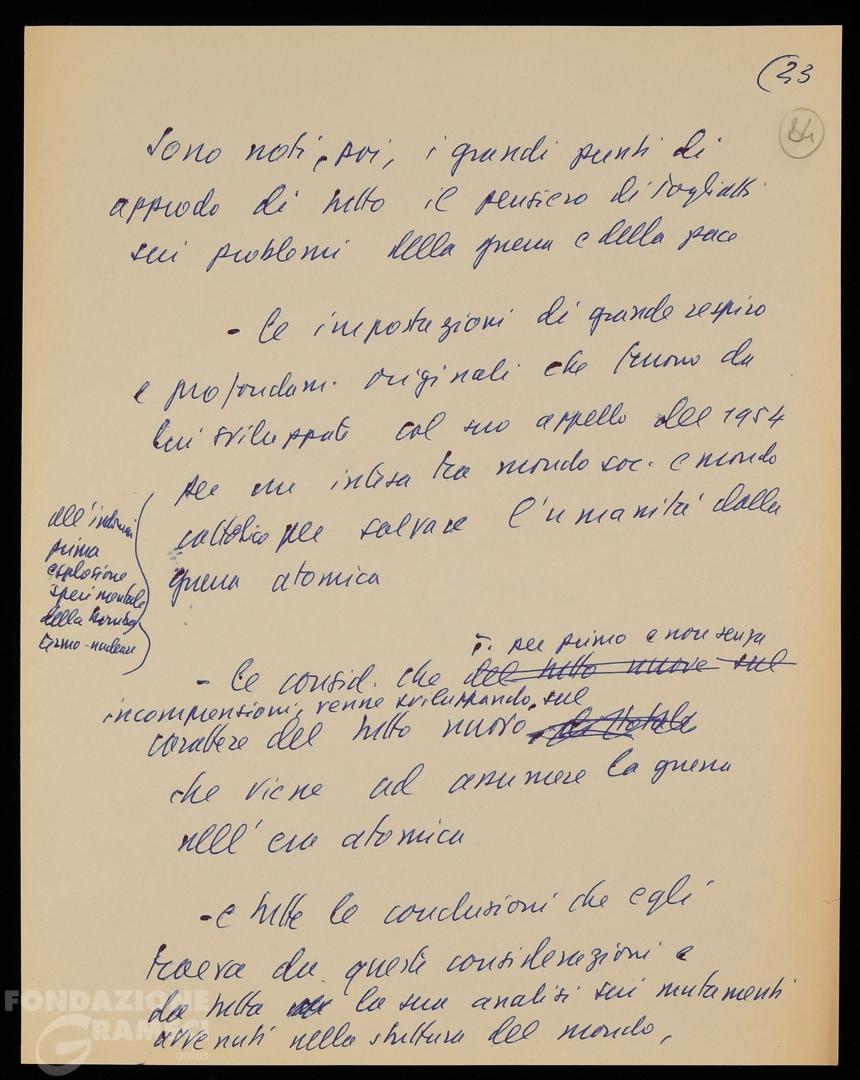 (23
84
Sono noti, poi, i grandi punti di
approdo di tutto il pensiero di Togliatti
sui problemi della guerra e della pace
- Le impostazioni di grande respiro
e profondam. originali che furono da
lui sviluppate col suo appello del 1954
per una intesa tra mondo soc. e mondo
cattolico per salvare l'umanità dalla
guerra atomica
all'indomani
prima
esplosione
sperimentale
della bomba
termo-nucleare
T. per primo e non senza
- Le consid. che del tutto nuove sul
incomprensioni, venne sviluppando, sul
carattere del tutto nuovo
che viene ad assumere la guerra
nell'era atomica
- e tutte le conclusioni che egli
traeva da queste considerazioni e
da tutta la sua analisi sui mutamenti
avvenuti nella struttura del mondo,
FONDAZIONE
GRAMSCI
onlus